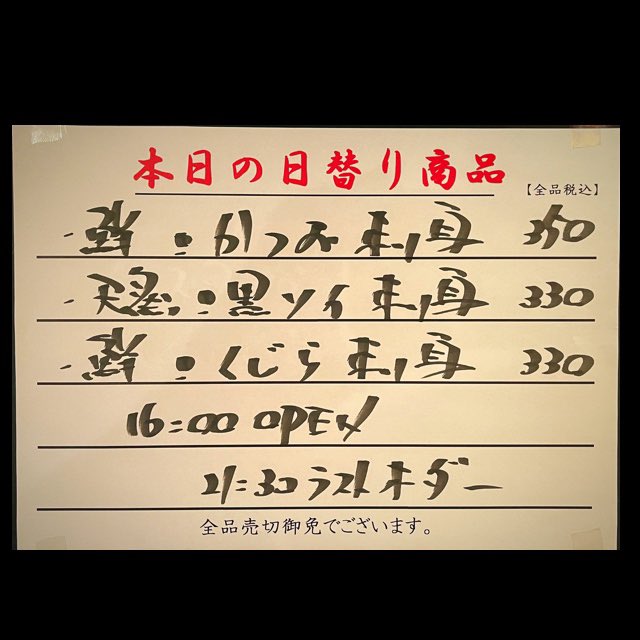 本日の日替り商品
【全品税込】
・鮮:かつお刺身 350
:黒ソイ刺身 330
・鮮:くじら刺身 330
16:00 OPEN
21:30 ラストオーダー
全品売切御免でございます。